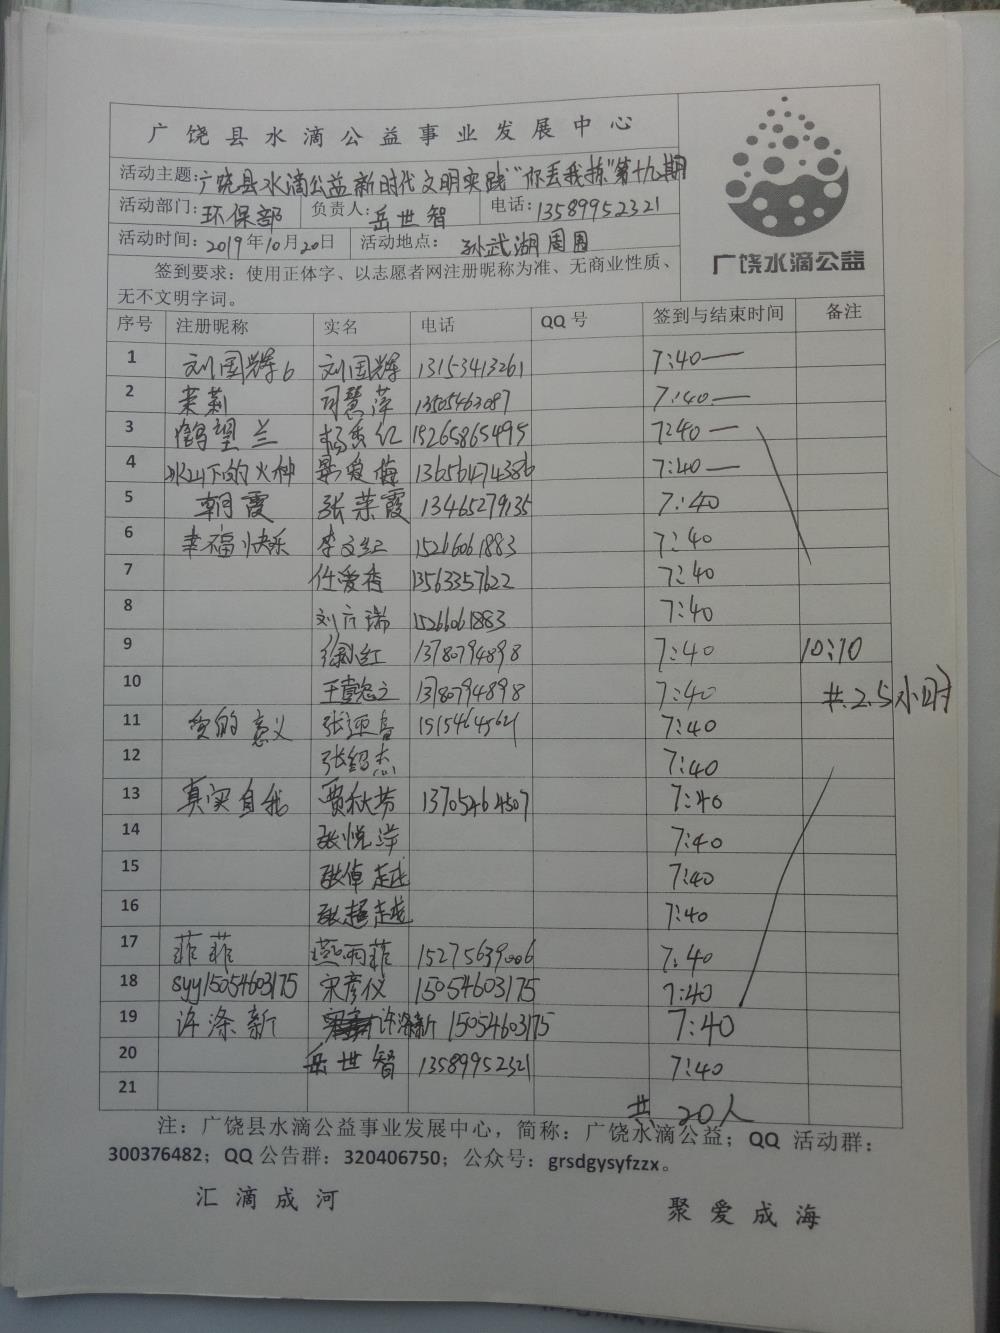 广饶县水滴公益事业发展中心
活动主题:广饶县水滴公益新时代文明实践"你丢我拣"第十九期
活动部门:环保部 负责人:岳世智 电话:13589952321
活动时间:2019年10月20日 活动地点:孙武湖周围
广饶水滴公益
签到要求:使用正体字、以志愿者网注册昵称为准、无商业性质、
无不文明字词。
序号 注册昵称 实名 电话 QQ号 签到与结束时间 备注
1 刘国辉6 刘国辉 13153413261 7:40—
2 茉莉 司慧萍 13505463087 7:40—
3 鹤望兰 杨秀红 15265865495 7:40—
4 冰山下的火种 爱梅 13656474386 7:40—
5 朝霞 张荣霞 13465279135 7:40
6 幸福快乐 李文红 15266061883 7:40
7 任爱香 13563357622 7:40
8 刘广瑞 15266061883 7:40
9 徐红 13780794898 7:40 10:10
10 王 13780794898 7:40 共2.5小时
11 爱的意义 张迎春 15154645621 7:40
12 张绍杰 7:40
13 真实自我 贾秋芳 13705464507 7:40
14 张悦洋 7:40
15 张倬越 7:40
16 张超越 7:40
17 菲菲 燕雨菲 15275639006 7:40
18 syy15054603175 宋彦仪 15054603175 7:40
19 许涤新 许涤新 15054603175 7:40
20 岳世智 13589952321 7:40
21
共20人
注:广饶县水滴公益事业发展中心,简称:广饶水滴公益;QQ 活动群:
300376482;QQ公告群:320406750;公众号:grsdgysyfzzx。
汇滴成河 聚爱成海